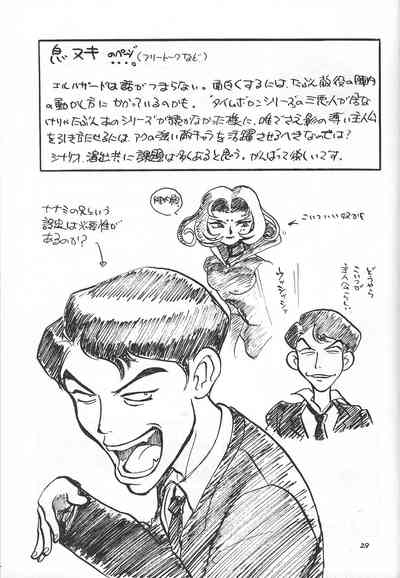 息ヌキのページ(フリートークなど)
エルハザードは話がつまらない。面白くするには、たぶん敵役の陣内
の動かし方にかかっているのかも。タイムボカンシリーズの三悪人が居な
ければたぶんあのシリーズが続かなかった様に、唯でさえ影の薄い主人公
を引き立たせるには、アクの強い敵キャラを活躍させるべきなのでは?
シナリオ、演出共に課題は多くあると思う。がんばって欲しいです。
ナナミの兄という
設定は必要性が
あるのか?
陣内殿
こいついい奴かも
ウッシャッシャ
どうやら
こいつが
主人公らしい
29